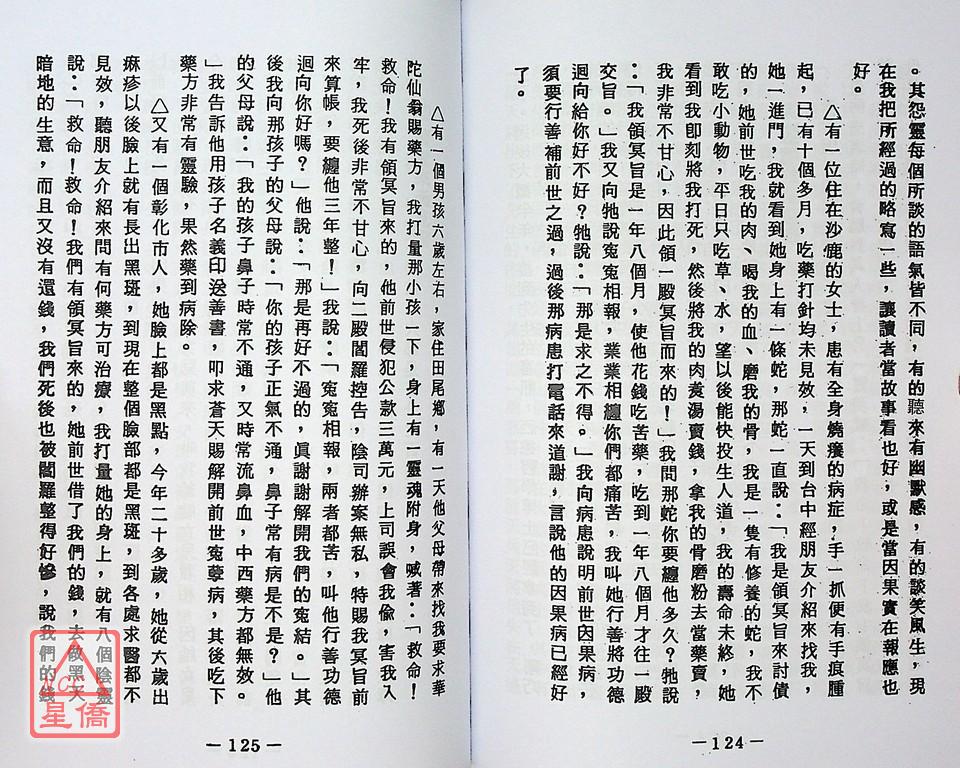 。其怨靈每個所談的語氣皆不同，有的聽來有幽默感，有的談笑風生，現
在我把所經過的略寫一些，讓讀者當故事看也好，或是當因果實在報應也
好。
△有一位住在沙鹿的女士，患有全身饒癢的病症，手一抓便有手痕腫
起，已有十個多月，吃藥打針均未見效，一天到台中經朋友介紹來找我，
她一進門，我就看到她身上有一條蛇，那蛇一直說：「我是領冥旨來討債
的，她前世吃我的肉、喝我的血、磨我的骨，我是一隻有修養的蛇，我不
敢吃小動物，平日只吃草、水，望以後能快投生人道，我的壽命未終，她
看到我即刻將我打死，然後將我的肉煑湯賣錢，拿我的骨磨粉去當藥賣，
我非常不甘心，因此領一殿冥旨而來的！」我問那蛇你要纏他多久？牠說
：「我領冥旨是一年八個月，使他花錢吃苦藥，吃到一年八個月才往一殿
交旨。」我又向牠說寃寃相報，業業相纏你們都痛苦，我叫她行善將功德
迴向給你好不好？牠說：「那是求之不得。」我向病患說明前世因果病，
須要行善補前世之過，過後那病患打電話來道謝，言說他的因果病已經好
了。
－124－
△有一個男孩六歲左右，家住田尾鄉，有一天他父母帶來找我要求華
陀仙翁賜藥方，我打量那小孩一下，身上有一靈魂附身，喊著：「救命！
救命！我有領冥旨來的，他前世侵犯公款三萬元，上司誤會我偸，害我入
牢，我死後非常不甘心，向二殿閻羅控告，陰司辦案無私，特賜我冥旨前
來算帳，要纏他三年整！」我說：「寃寃相報，兩者都苦，叫他行善功德
迴向你好嗎？」他說：「那是再好不過的，眞謝謝解開我們的寃結。」其
後我向那孩子的父母說：「你的孩子正氣不通，鼻子常有病是不是？」他
的父母說：「我的孩子鼻子時常不通，又時常流鼻血，中西藥方都無效。
」我告訴他用孩子名義印送善書，叩求蒼天賜解開前世寃孽病，其後吃下
藥方非常有靈驗，果然藥到病除。
△又有一個彰化市人，她臉上都是黑點，今年二十多歲，她從六歲出
痳疹以後臉上就有長出黑斑，到現在整個臉部都是黑斑，到各處求醫都不
見效，聽朋友介紹來問有何藥方可治療，我打量她的身上，就有八個陰靈
說：「救命！救命！我們有領冥旨來的，她前世借了我們的錢，去做黑天
暗地的生意，而且又沒有還錢，我們死後也被閻羅整得好慘，說我們的錢
－125－
NCC
星僑